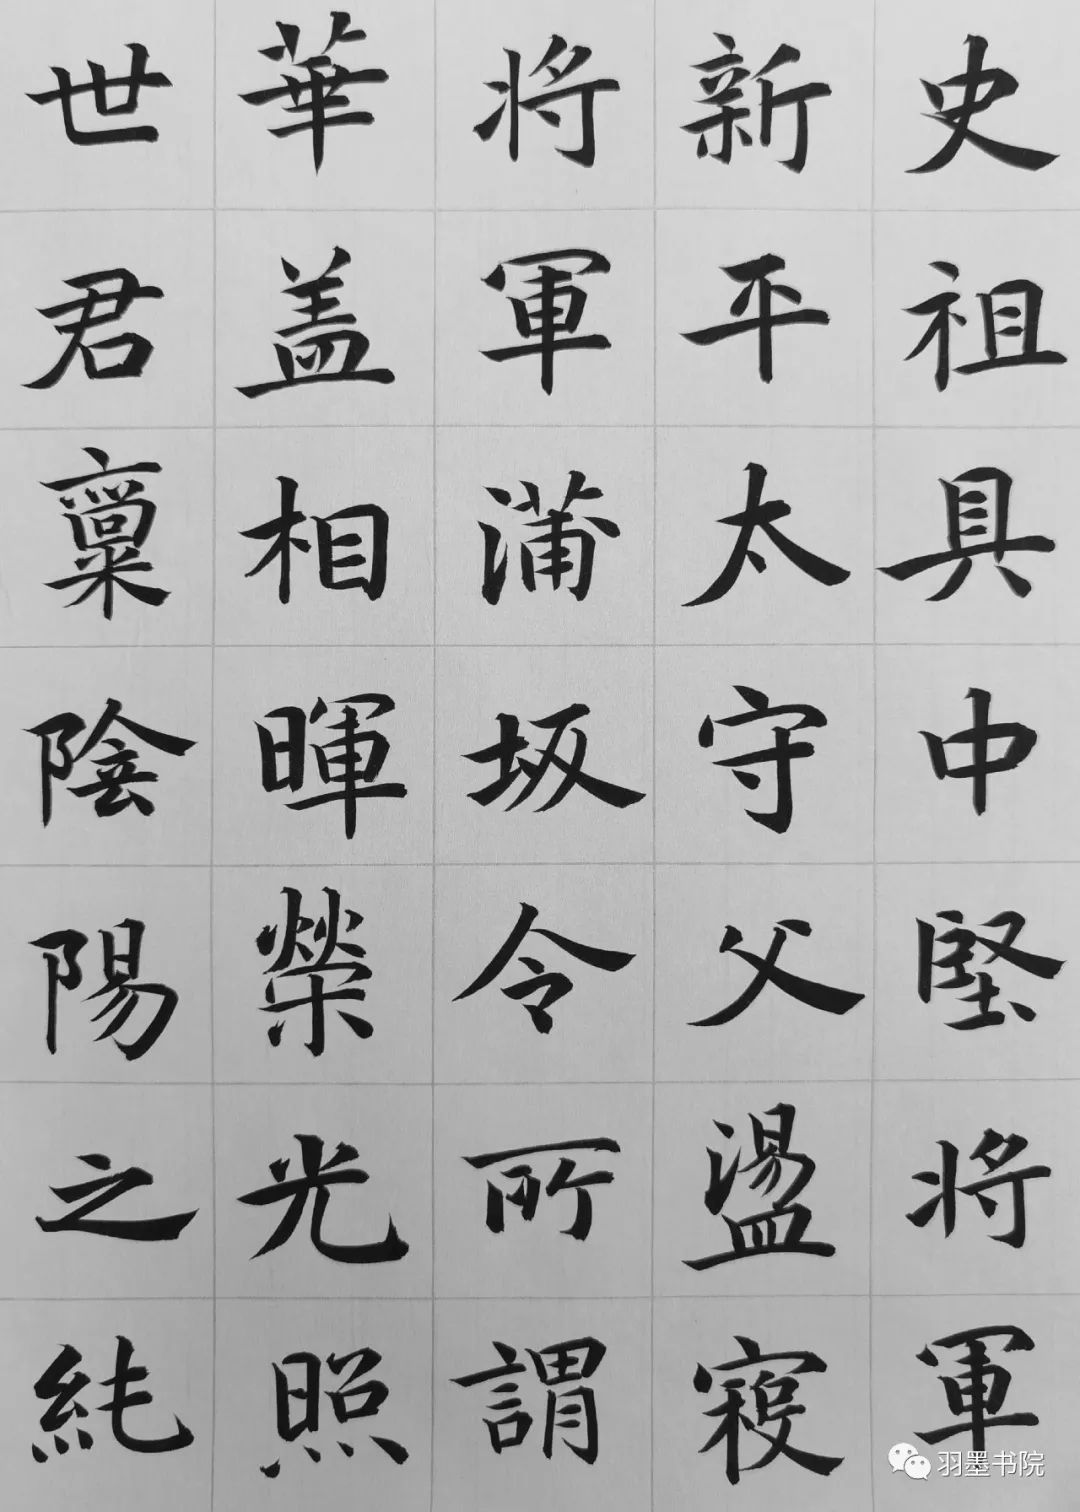 史祖具中堅將軍
新平太守父盪寇
將軍蒲坂令所謂
華蓋相暉榮光照
世君稟陰陽之純
羽墨书院